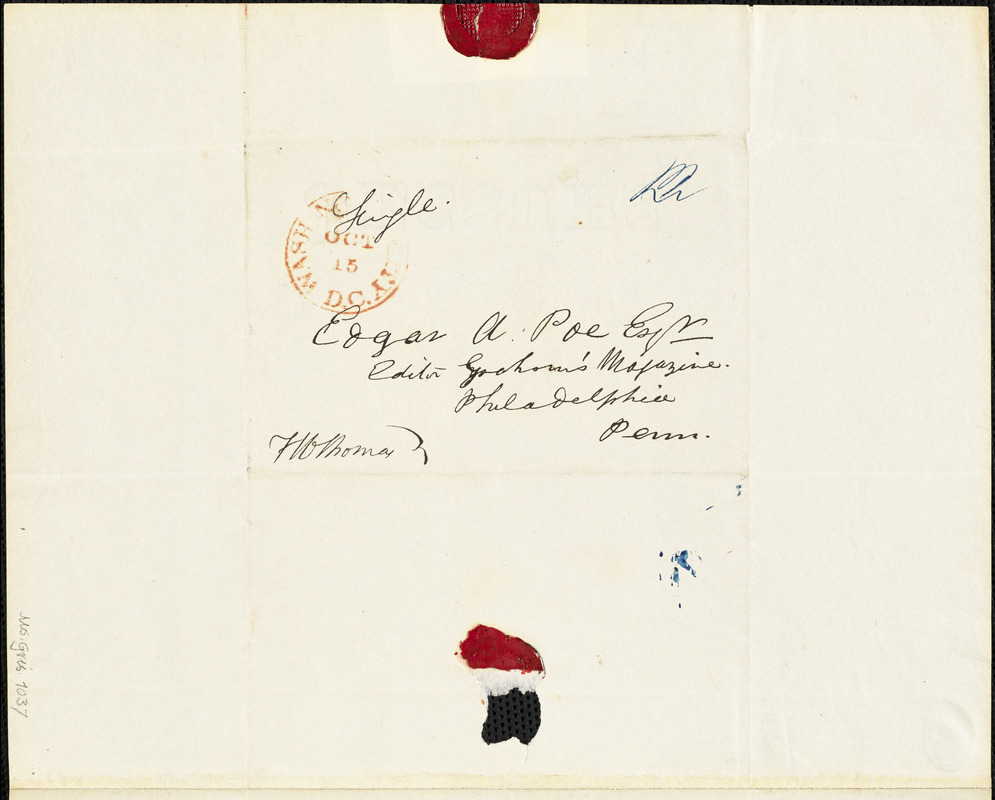 Single.
WASHING
CITY
OCT
15
D.C.
Edgar A. Poe Esqr
Editor Graham's Magazine.
Philadelphia
Penn.
F W Thomas
Ms. Gris. 1037